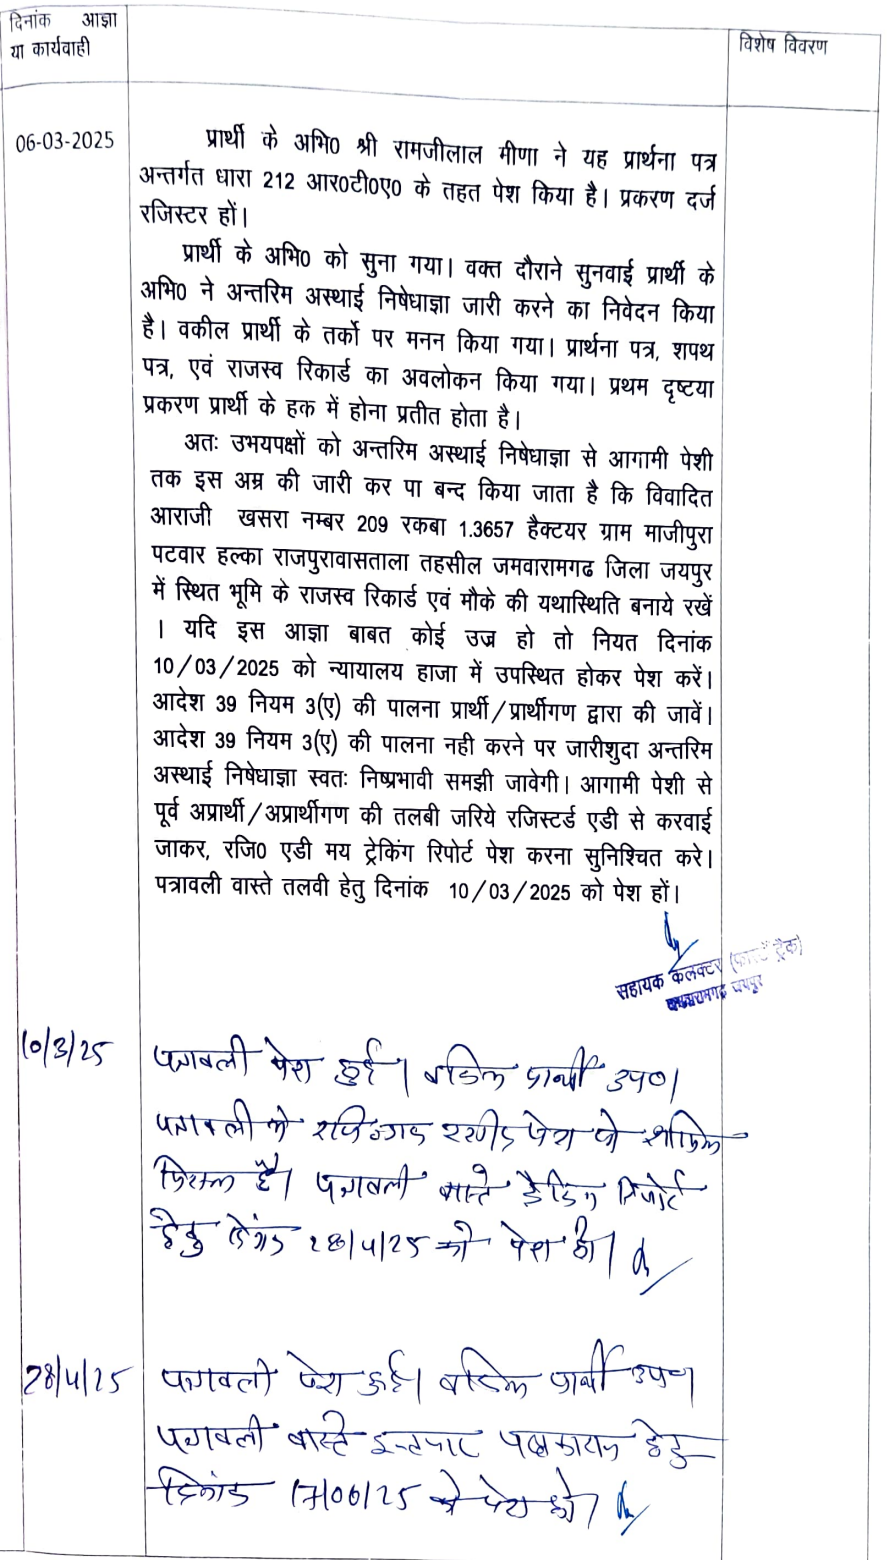 दिनांक आज्ञा
या कार्यवाही
विशेष विवरण
06-03-2025
प्रार्थी के अभि0 श्री रामजीलाल मीणा ने यह प्रार्थना पत्र
अन्तर्गत धारा 212 आर0टी0ए0 के तहत पेश किया है। प्रकरण दर्ज
रजिस्टर हों।
प्रार्थी के अभि0 को सुना गया। वक्त दौराने सुनवाई प्रार्थी के
अभि0 ने अन्तरिम अस्थाई निषेधाज्ञा जारी करने का निवेदन किया
है। वकील प्रार्थी के तर्को पर मनन किया गया। प्रार्थना पत्र, शपथ
पत्र, एवं राजस्व रिकार्ड का अवलोकन किया गया। प्रथम दृष्टया
प्रकरण प्रार्थी के हक में होना प्रतीत होता है।
अतः उभयपक्षों को अन्तरिम अस्थाई निषेधाज्ञा से आगामी पेशी
तक इस अम्र की जारी कर पा बन्द किया जाता है कि विवादित
आराजी खसरा नम्बर 209 रकबा 1.3657 हैक्टयर ग्राम माजीपुरा
पटवार हल्का राजपुरावासताला तहसील जमवारामगढ जिला जयपुर
में स्थित भूमि के राजस्व रिकार्ड एवं मौके की यथास्थिति बनाये रखें
। यदि इस आज्ञा बाबत कोई उज्र हो तो नियत दिनांक
10/03/2025 को न्यायालय हाजा में उपस्थित होकर पेश करें।
आदेश 39 नियम 3(ए) की पालना प्रार्थी/प्रार्थीगण द्वारा की जावें।
आदेश 39 नियम 3(ए) की पालना नही करने पर जारीशुदा अन्तरिम
अस्थाई निषेधाज्ञा स्वतः निष्प्रभावी समझी जावेगी। आगामी पेशी से
पूर्व अप्रार्थी/अप्रार्थीगण की तलबी जरिये रजिस्टर्ड एडी से करवाई
जाकर, रजि0 एडी मय ट्रेकिंग रिपोर्ट पेश करना सुनिश्चित करे।
पत्रावली वास्ते तलवी हेतु दिनांक 10/03/2025 को पेश हों।
सहायक कलक्टर (फास्ट ट्रैक)
जमवारामगढ़ जयपुर
10/3/25
पत्रावली पेश हुई। वकिल प्रार्थी उप०।
पत्रावली रसीद पेश की शामिल
मिसल है। पत्रावली वास्ते रिपोर्ट
हेतु दिनांक 28/4/25 को पेश हो।
28/4/25
पत्रावली पेश हुई। वकिल प्रार्थी उप०।
पत्रावली वास्ते इन्तजार हेतु
दिनांक 17/06/25 को पेश हो।